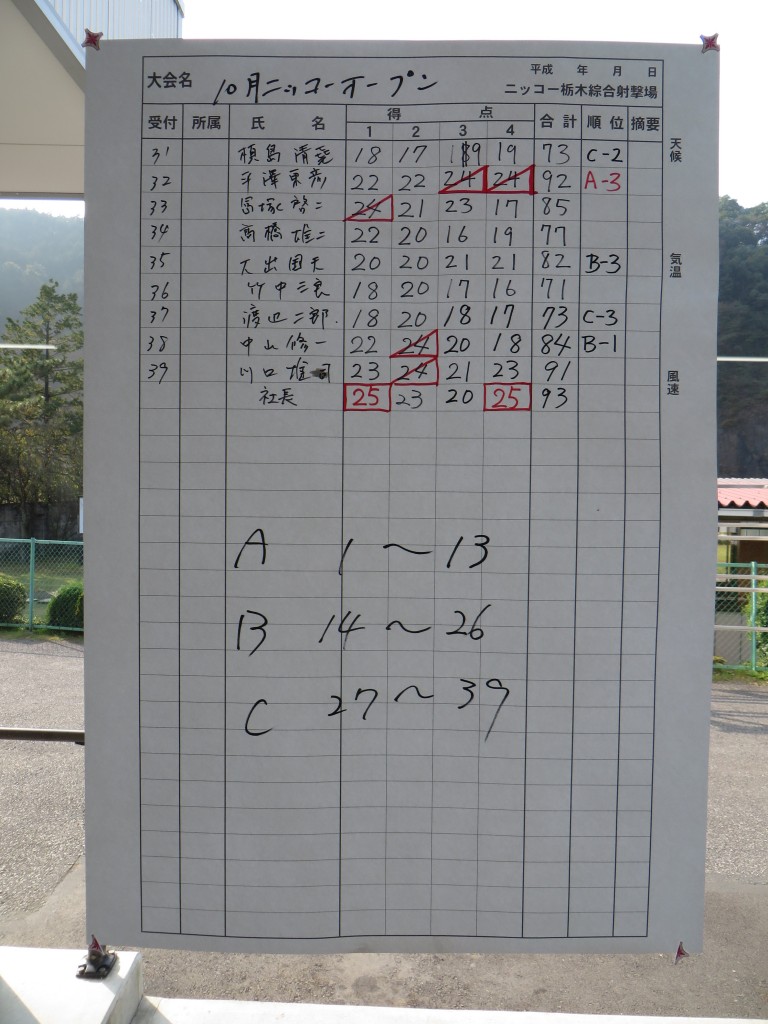 大会名 10月ニッコーオープン 平成 年 月 日
ニッコー栃木綜合射撃場
受付 所属 氏 名 得 点 合計 順位 摘要
1 2 3 4
天候
31 18 17 19 19 73 C-2
32 22 22 24 24 92 A-3
33 24 21 23 17 85
34 高橋雄二 22 20 16 19 77
気温
35 大出国夫 20 20 21 21 82 B-3
36 竹中三良 18 20 17 16 71
37 渡辺二郎. 18 20 18 17 73 C-3
38 中山修一 22 24 20 18 84 B-1
39 川口雄司 23 24 21 23 91
風速
社長 25 23 20 25 93
A 1～13
B 14～26
C 27～39